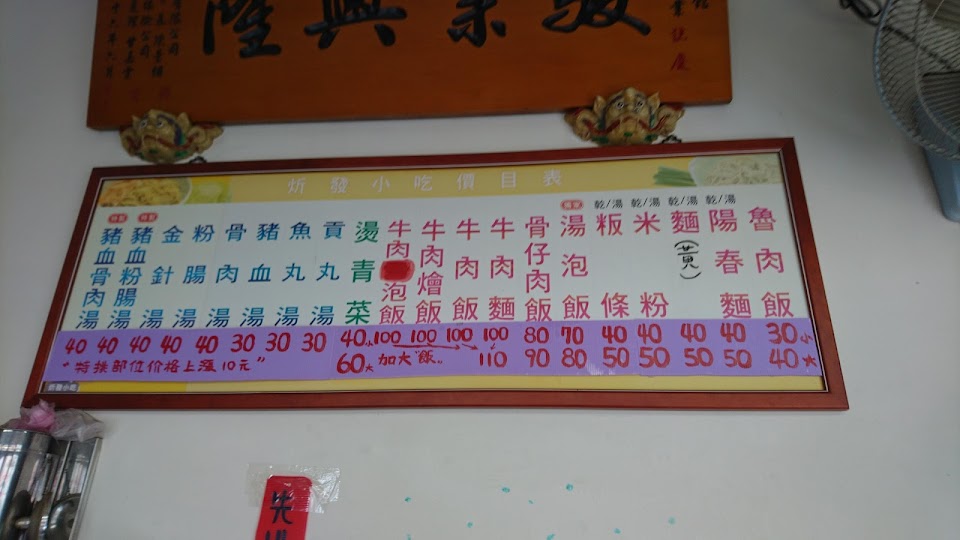 駿業興隆
炘發小吃價目表
魯肉飯
乾/湯
陽春麵
乾/湯
麵(黄)
乾/湯
米粉
乾/湯
粄條
湯泡飯
骨仔肉飯
牛肉麵
牛肉飯
牛肉燴飯
牛肉泡飯
燙青菜
貢丸湯
魚丸湯
豬血湯
骨肉湯
粉腸湯
金針湯
豬血粉腸湯
豬血骨肉湯
40 40 40 40 40 30 30 30 40小 100 100 100 100 80 70 40 40 40 40 30小
"特殊部位价格上漲10元" 60大 加大"飯" 110 90 80 50 50 50 50 40大
炘發小吃
先